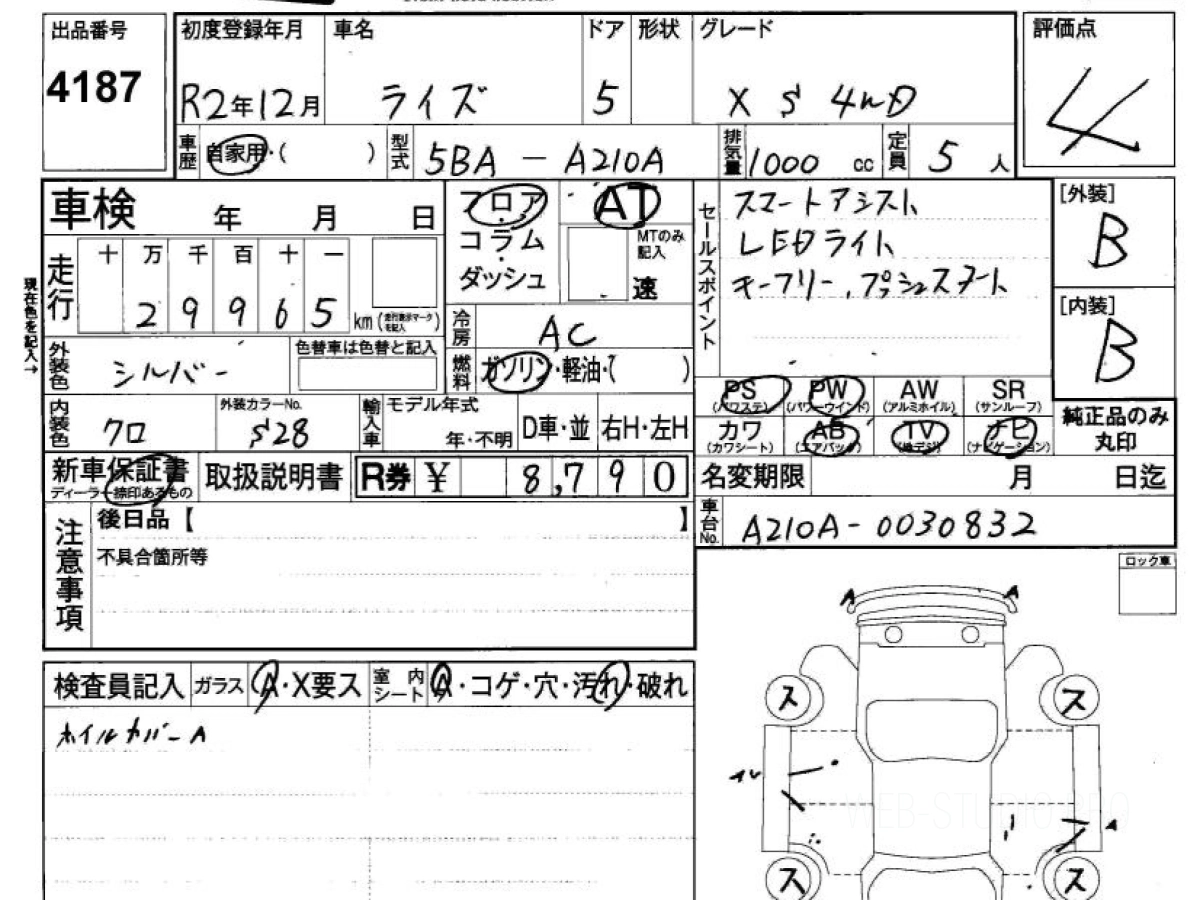 出品番号
4187
初度登録年月
R2年12月
車名
ライズ
ドア
5
形状
グレード
X S 4WD
評価点
4
車歴
自家用・( )
型式
5BA - A210A
排気量
1000 cc
定員
5 人
車検 年 月 日
フロア
コラム
ダッシュ
AT
MTのみ記入
速
セールスポイント
スマートアシスト
LEDライト
キーフリー、プッシュスタート
[外装]
B
[内装]
B
現在色を記入→
走行
十 万 千 百 十 一
2 9 9 6 5 km
冷房
AC
燃料
ガソリン・軽油・( )
外装色
シルバー
色替車は色替と記入
内装色
クロ
外装カラーNo.
S28
輸入車
モデル年式
年・不明
D車・並
右H・左H
PS
(パワステ)
PW
(パワーウインド)
AW
(アルミホイル)
SR
(サンルーフ)
カワ
(カワシート)
AB
(エアバッグ)
TV
(地デジ)
ナビ
(ナビゲーション)
純正品のみ
丸印
新車保証書
ディーラー捺印あるもの
取扱説明書
R券 ¥ 8,790
名変期限 月 日迄
車台No.
A210A-0030832
注意事項
後日品【 】
不具合箇所等
ロック車
検査員記入
ガラス
A・X要ス
室内シート
A・コゲ・穴・汚れ・破れ
ホイルカバーA
A
A
ス
ス
A
ス
ス
WEB-STUDIO.PRO